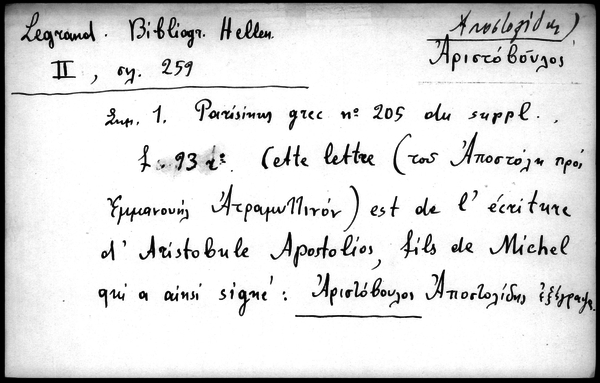 Legrand. Bibliogr. Hellen.
II, σελ. 259
Ἀποστολίδης)
Ἀριστόβουλος
Σημ. 1. Parisinus grec nº 205 du suppl.,
f. 93 rº. Cette lettre (τοῦ Ἀποστόλη πρὸς
Ἐμμανουὴλ Ἀτραμυττινόν) est de l'écriture
d'Aristobule Apostolios, fils de Michel
qui a ainsi signé: Ἀριστόβουλος Ἀποστολίδης ἐξέγραψα.